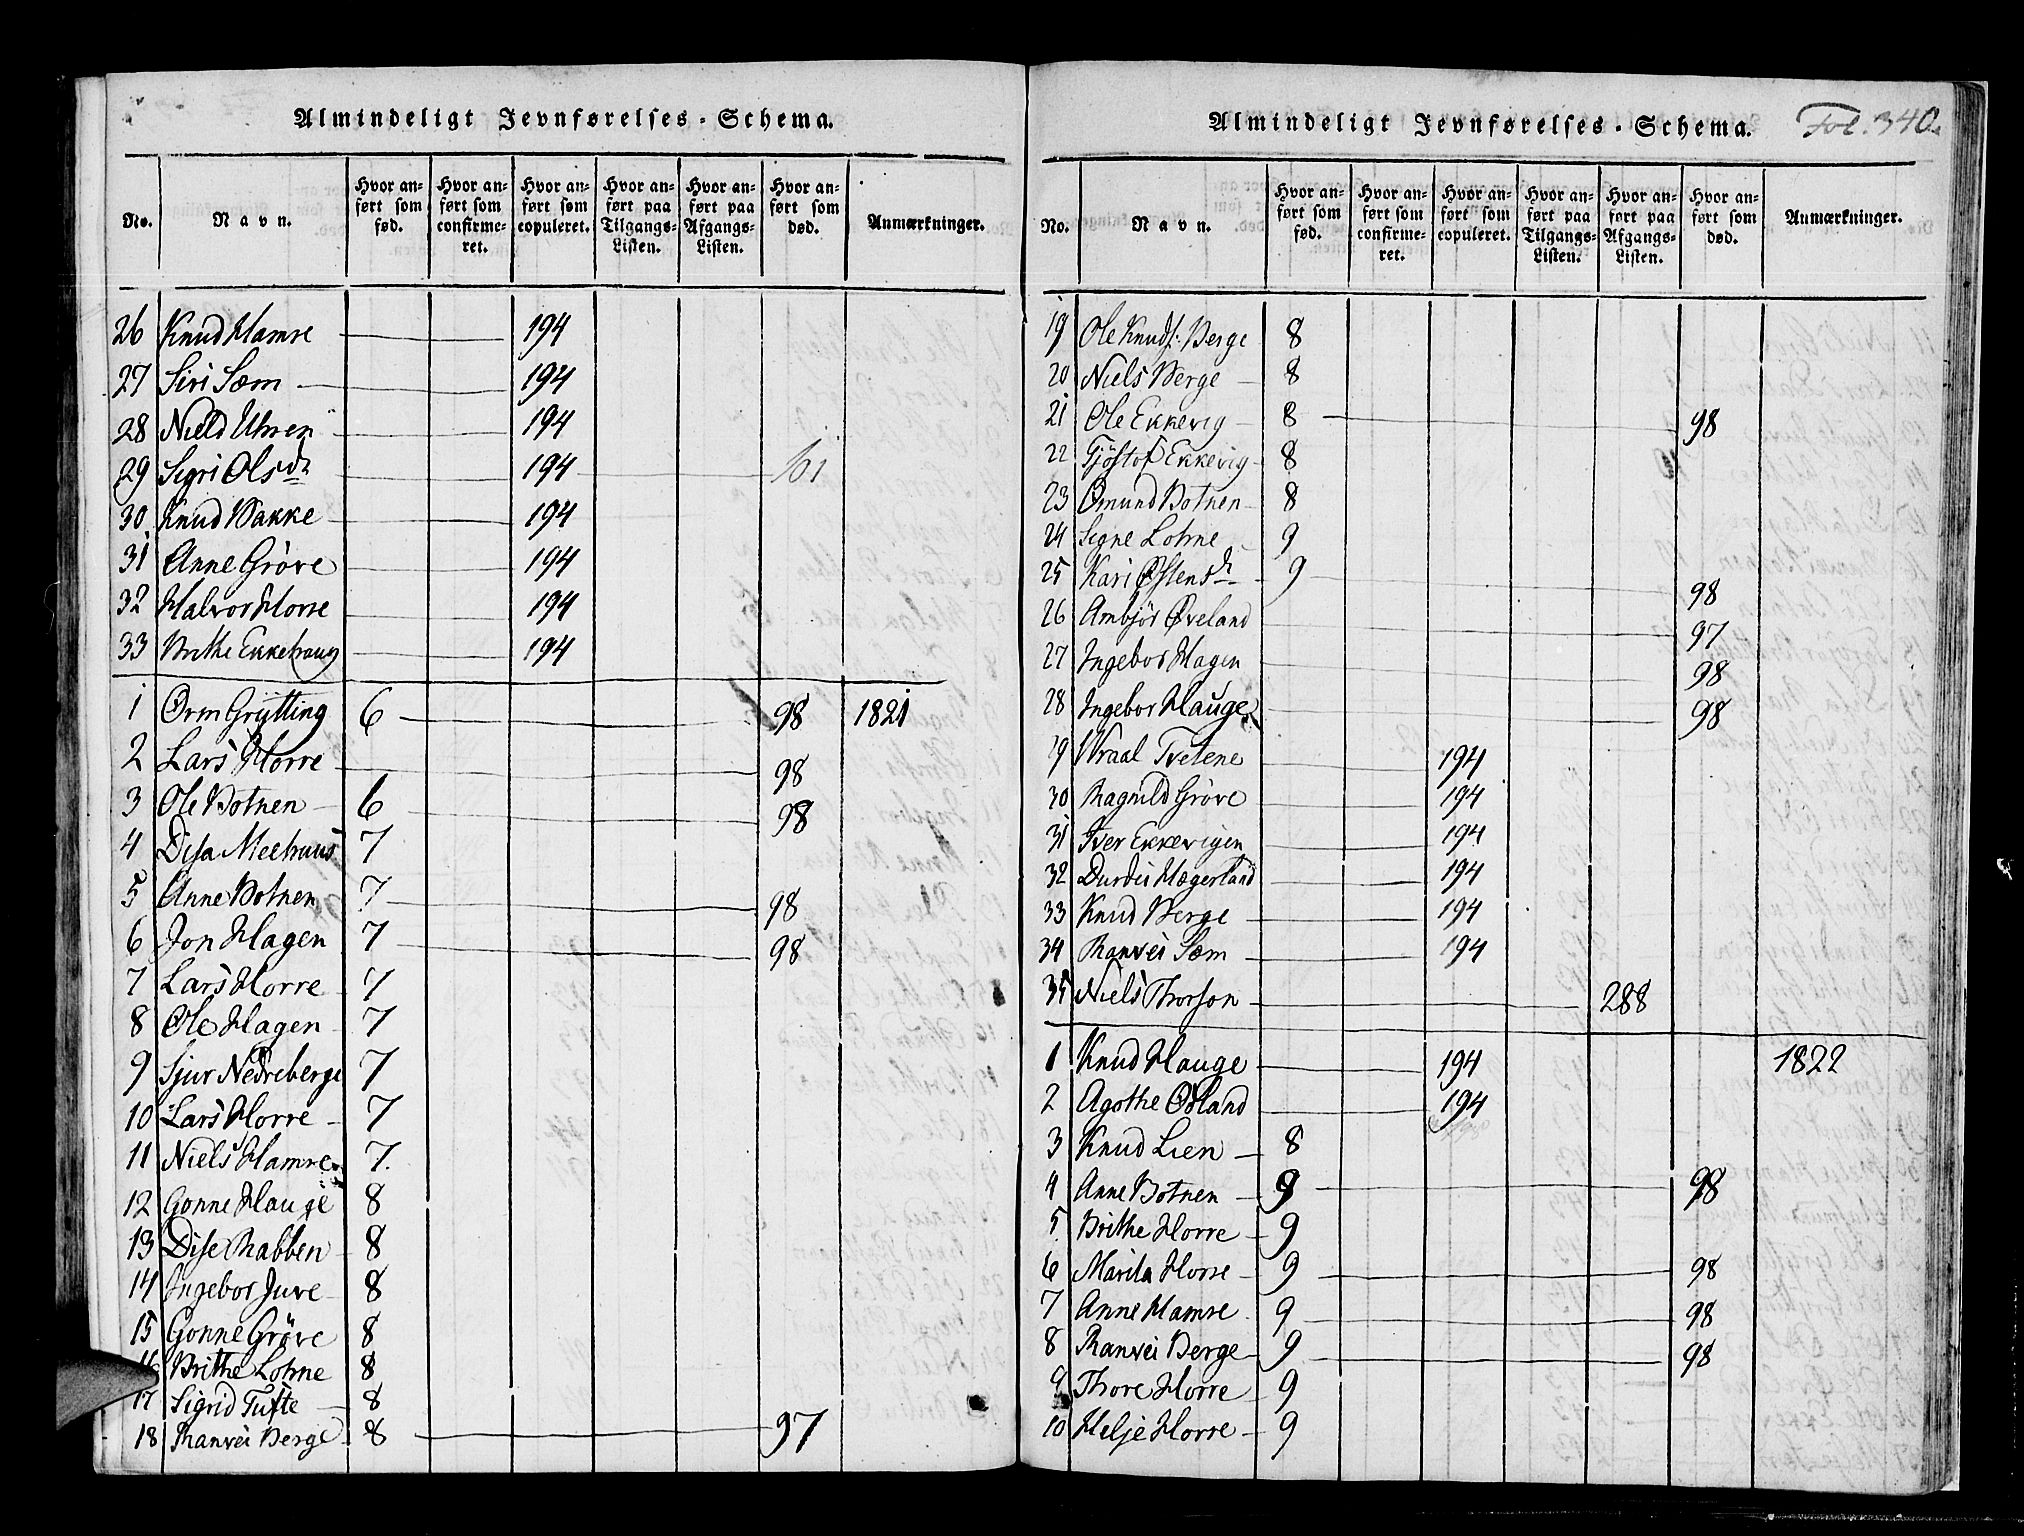 Almindeligt Jevnførelses-Schema.
No. Navn. Hvor anført som fød. Hvor anført som confirmeret. Hvor anført som copuleret. Hvor anført paa Tilgangs-Listen. Hvor anført paa Afgangs-Listen. Hvor anført som død. Anmærkninger.
26 Knud Hamre 194
27 Siri Sæm 194
28 Nield Uhren 194
29 Sigri Olsdr 194 101
30 Knud Bakke 194
31 Anne Gröve 194
32 Halvor Horre 194
33 Brithe Ekkehaug 194
1 Orm Grÿtting 6 98 1821
2 Lars Horre 98
3 Ole Botnen 6 98
4 Disa Meehuus 7
5 Anne Botnen 7 98
6 Jon Hagen 7 98
7 Lars Horre 7
8 Ole Hagen 7
9 Sjur Nedreberge 7
10 Lars Horre 7
11 Niels Hamre 7.
12 Gonne Hauge 8
13 Dise Rabben 8
14 Ingebor Juve 8
15 Gonne Gröve 8
16 Brithe Lohne 8
17 Sigrid Tufte 8
18 Ranvei Berge 8 97
Almindeligt Jevnførelses-Schema. Fol. 340.
No. Navn. Hvor anført som fød. Hvor anført som confirmeret. Hvor anført som copuleret. Hvor anført paa Tilgangs-Listen. Hvor anført paa Afgangs-Listen. Hvor anført som død. Anmærkninger.
19 Ole Knuds: Berge 8
20 Niels Berge 8
21 Ole Ekkevig 8 98
22 Tjöstof Ekkevig 8
23 Omund Botnen 8
24 Signe Lohne 9
25 Kari Østensdr 9 98
26 Ambjör Øveland 97
27 Ingebor Hagen 98
28 Ingebor Hauge 98
29 Wraal Tvetene 194
30 Ragnild Gröve 194
31 Iver Ekkevigen 194
32 Durdei Hægerland 194
33 Knud Berge 194
34 Ranvei Sæm 194
35 Niels Thorson 288
1 Knud Hauge 194 1822
2 Agothe Ødland 194
3 Knud Lien 8
4 Anne Botnen 9 98
5. Brithe Horre 9
6 Marita Horre 9 98
7 Anne Hamre 9 98
8 Ranvei Berge 9 98
9 Thore Horre 9
10 Helje Horre 9